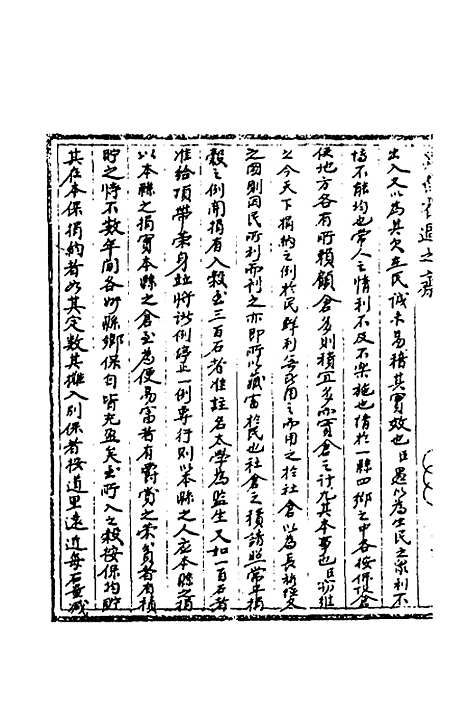 出入又以為其欠在民誠未易稽其實效也臣愚以為士民之樂利不
恊不能均也常人之情利不及不樂施也惰於一縣四鄉之中各按保設倉
使地方各有所賴顧倉多則積宜多而實倉之計尤其本事也臣窃惟
之今天下捐納之例於民鮮利每民用之而用之於社倉以為長新經久
之因則因民所利而利之亦即所以藏富於民也社倉之積請照常平捐
穀之例南捐有入穀至三百石者准註名太學為監生又如一百石者
准給頂帶榮身並將此例停止一例專行則以本縣之人应本縣之捐
以本縣之捐實本縣之倉至為便易富者有爵賞之榮貧者有積
貯之恃不数年間各州縣鄉保自皆充盈矣出所入之穀按保均貯
其在本保捐約者如其定数其攤入別保者按道里遠近每石量减